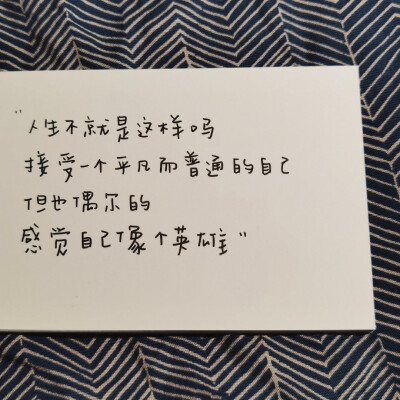 "人生不就是这样吗
接受一个平凡而普通的自己
但也偶尔的
感觉自己像个英雄"